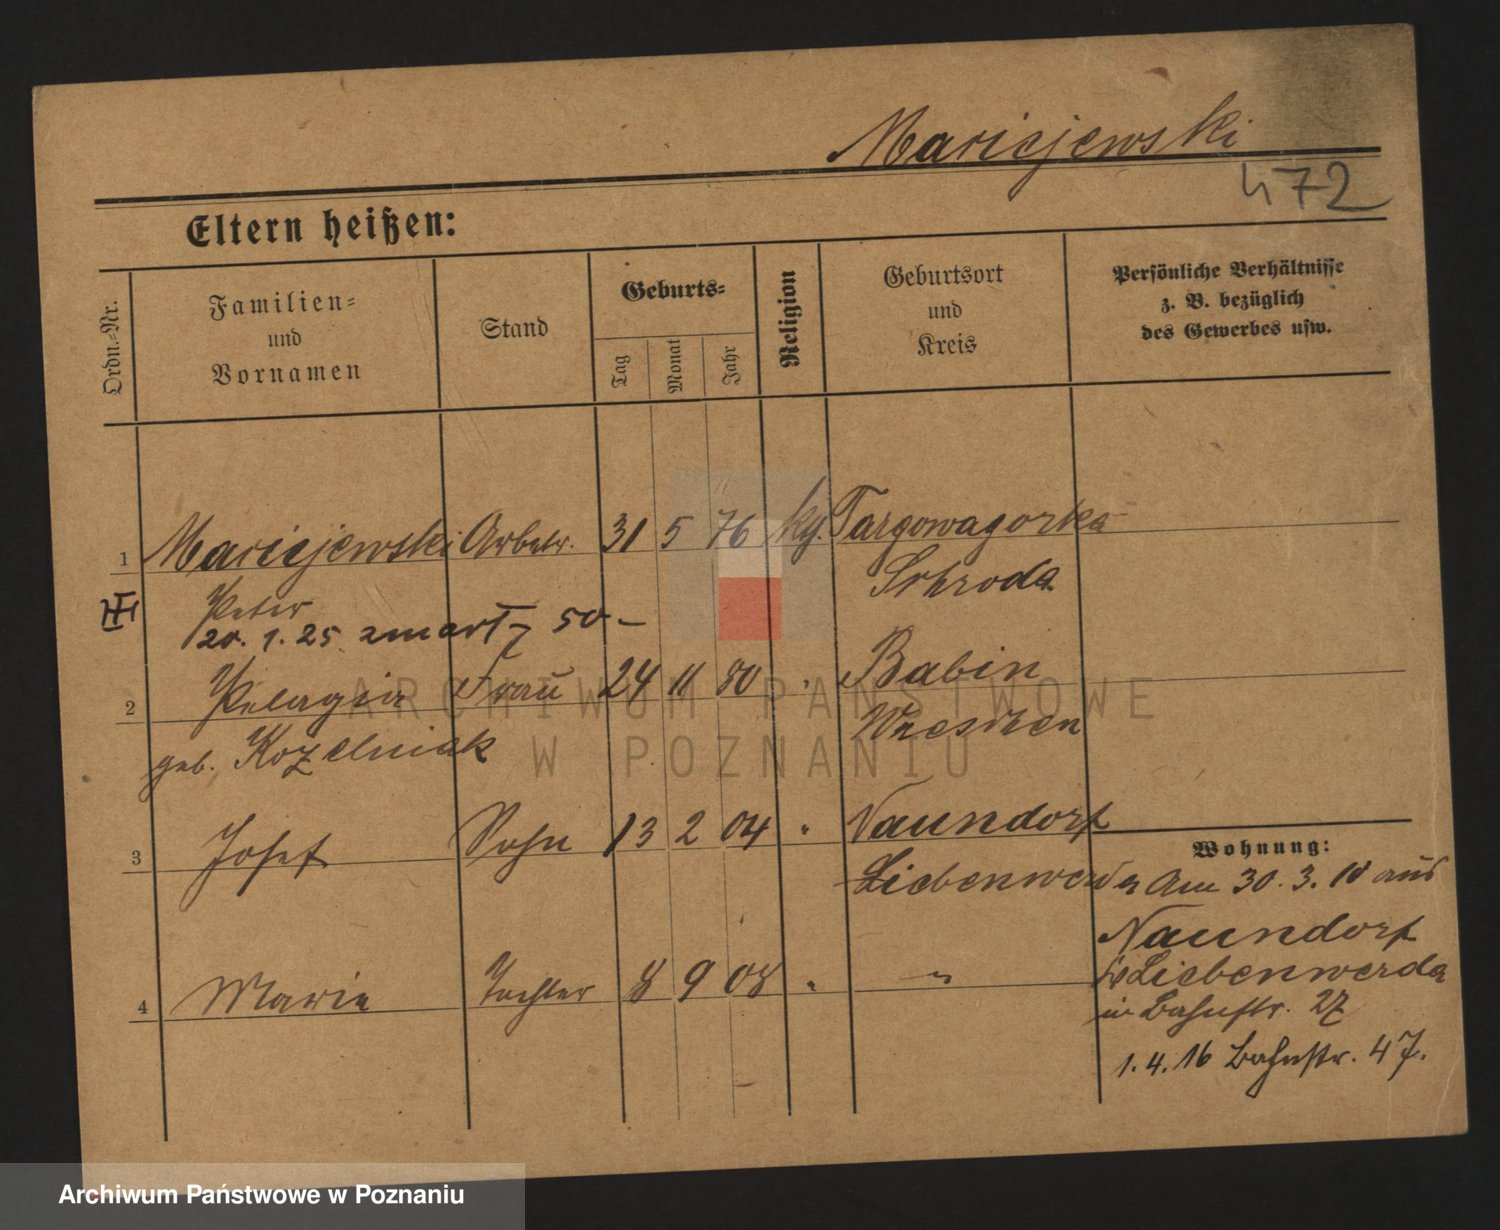 Maricjewski
472
Eltern heißen:
Ordn.-Nr.
Familien-
und
Vornamen
Stand
Geburts-
Tag
Monat
Jahr
Religion
Geburtsort
und
Kreis
Persönliche Verhältnisse
z. B. bezüglich
des Gewerbes usw.
1 Maricjewski Arbeitr. 31 5 76 Targowagorka
Peter Schroda
20. 1. 25 zmarł 50 –
2 Pelagia Frau 24 11 80 " Babin
geb. Kozelniak Wreschen
3 Josef Sohn 13 2 04 " Naundorf
Liebenwerda
Wohnung:
Am 30. 3. 10 aus
Naundorf
Liebenwerda
in Bahnstr. 27
1. 4. 16 Bahnstr. 47.
4 Marie Tochter 8 9 08 " "
ARCHIWUM PAŃSTWOWE
W POZNANIU
Archiwum Państwowe w Poznaniu